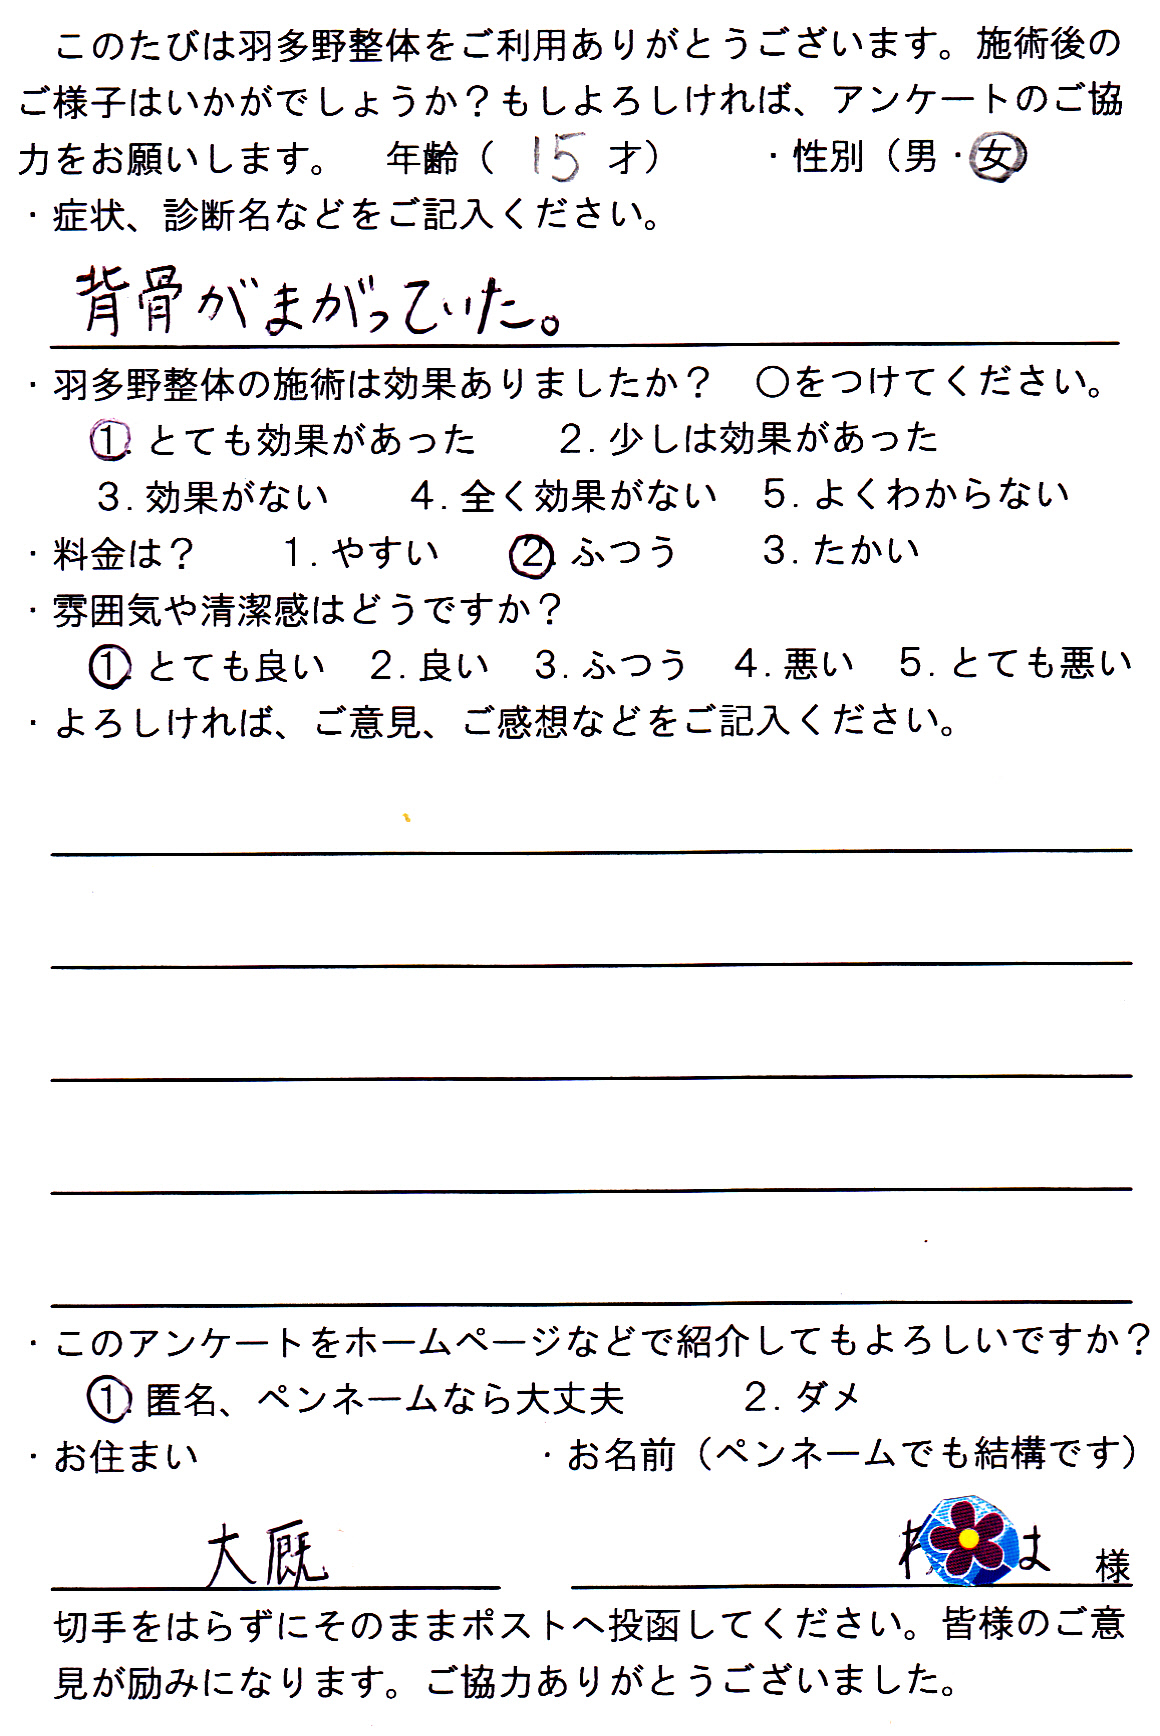 このたびは羽多野整体をご利用ありがとうございます。施術後の
ご様子はいかがでしょうか？もしよろしければ、アンケートのご協
力をお願いします。　年齢（ 15 才）　・性別（男・女）
・症状、診断名などをご記入ください。
背骨がまがっていた。
・羽多野整体の施術は効果ありましたか？　〇をつけてください。
1. とても効果があった　2. 少しは効果があった
3. 効果がない　4. 全く効果がない　5. よくわからない
・料金は？　1. やすい　2. ふつう　3. たかい
・雰囲気や清潔感はどうですか？
1. とても良い　2. 良い　3. ふつう　4. 悪い　5. とても悪い
・よろしければ、ご意見、ご感想などをご記入ください。
・このアンケートをホームページなどで紹介してもよろしいですか？
1. 匿名、ペンネームなら大丈夫　2. ダメ
・お住まい　・お名前（ペンネームでも結構です）
大厩　は 様
切手をはらずにそのままポストへ投函してください。皆様のご意
見が励みになります。ご協力ありがとうございました。